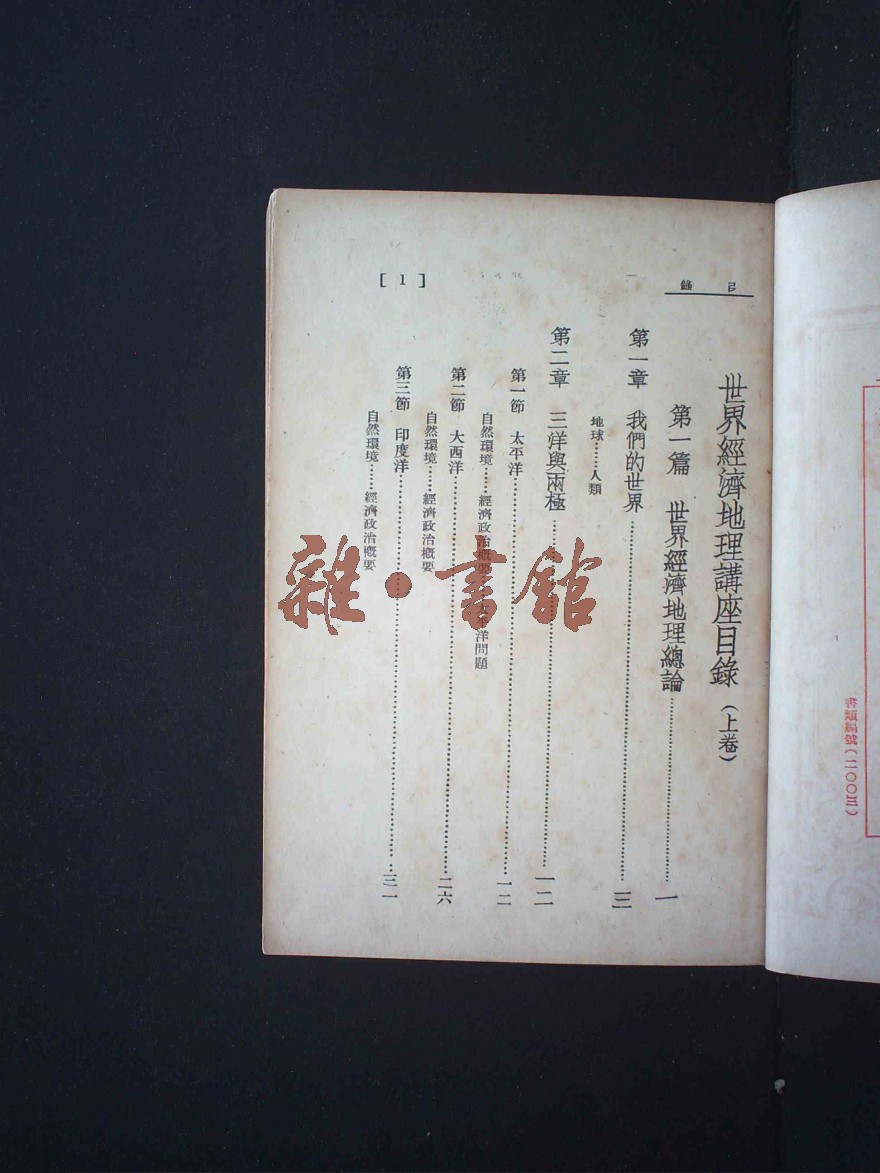 書類編號(二〇〇三)
目錄
世界經濟地理講座目錄(上卷)
第一篇 世界經濟地理總論……一
第一章 我們的世界……三
地球……人類
第二章 三洋與兩極……一二
第一節 太平洋……一二
自然環境……經濟政治概要……太平洋問題
第二節 大西洋……二六
自然環境……經濟政治概要
第三節 印度洋……三一
自然環境……經濟政治概要
[1]
雜·書館